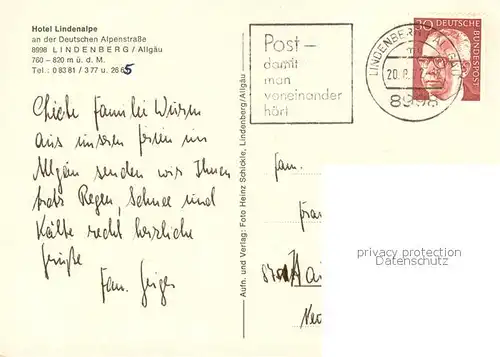 Hotel Lindenalpe
an der Deutschen Alpenstraße
8998 LINDENBERG / Allgäu
760 – 820 m ü. d. M.
Tel.: 0 83 81 / 3 77 u. 26 65
Familie
aus unseren Ferien im
Allgäu senden wir Ihnen
trotz Regen, Schnee und
Kälte recht herzliche
Grüße
Fam. Geiger
Aufn. und Verlag: Foto Heinz Schickle, Lindenberg/Allgäu
Post –
damit
man
voneinander
hört
LINDENBERG
20.8.
8998
30 DEUTSCHE
BUNDESPOST
Fam.
privacy protection
Datenschutz